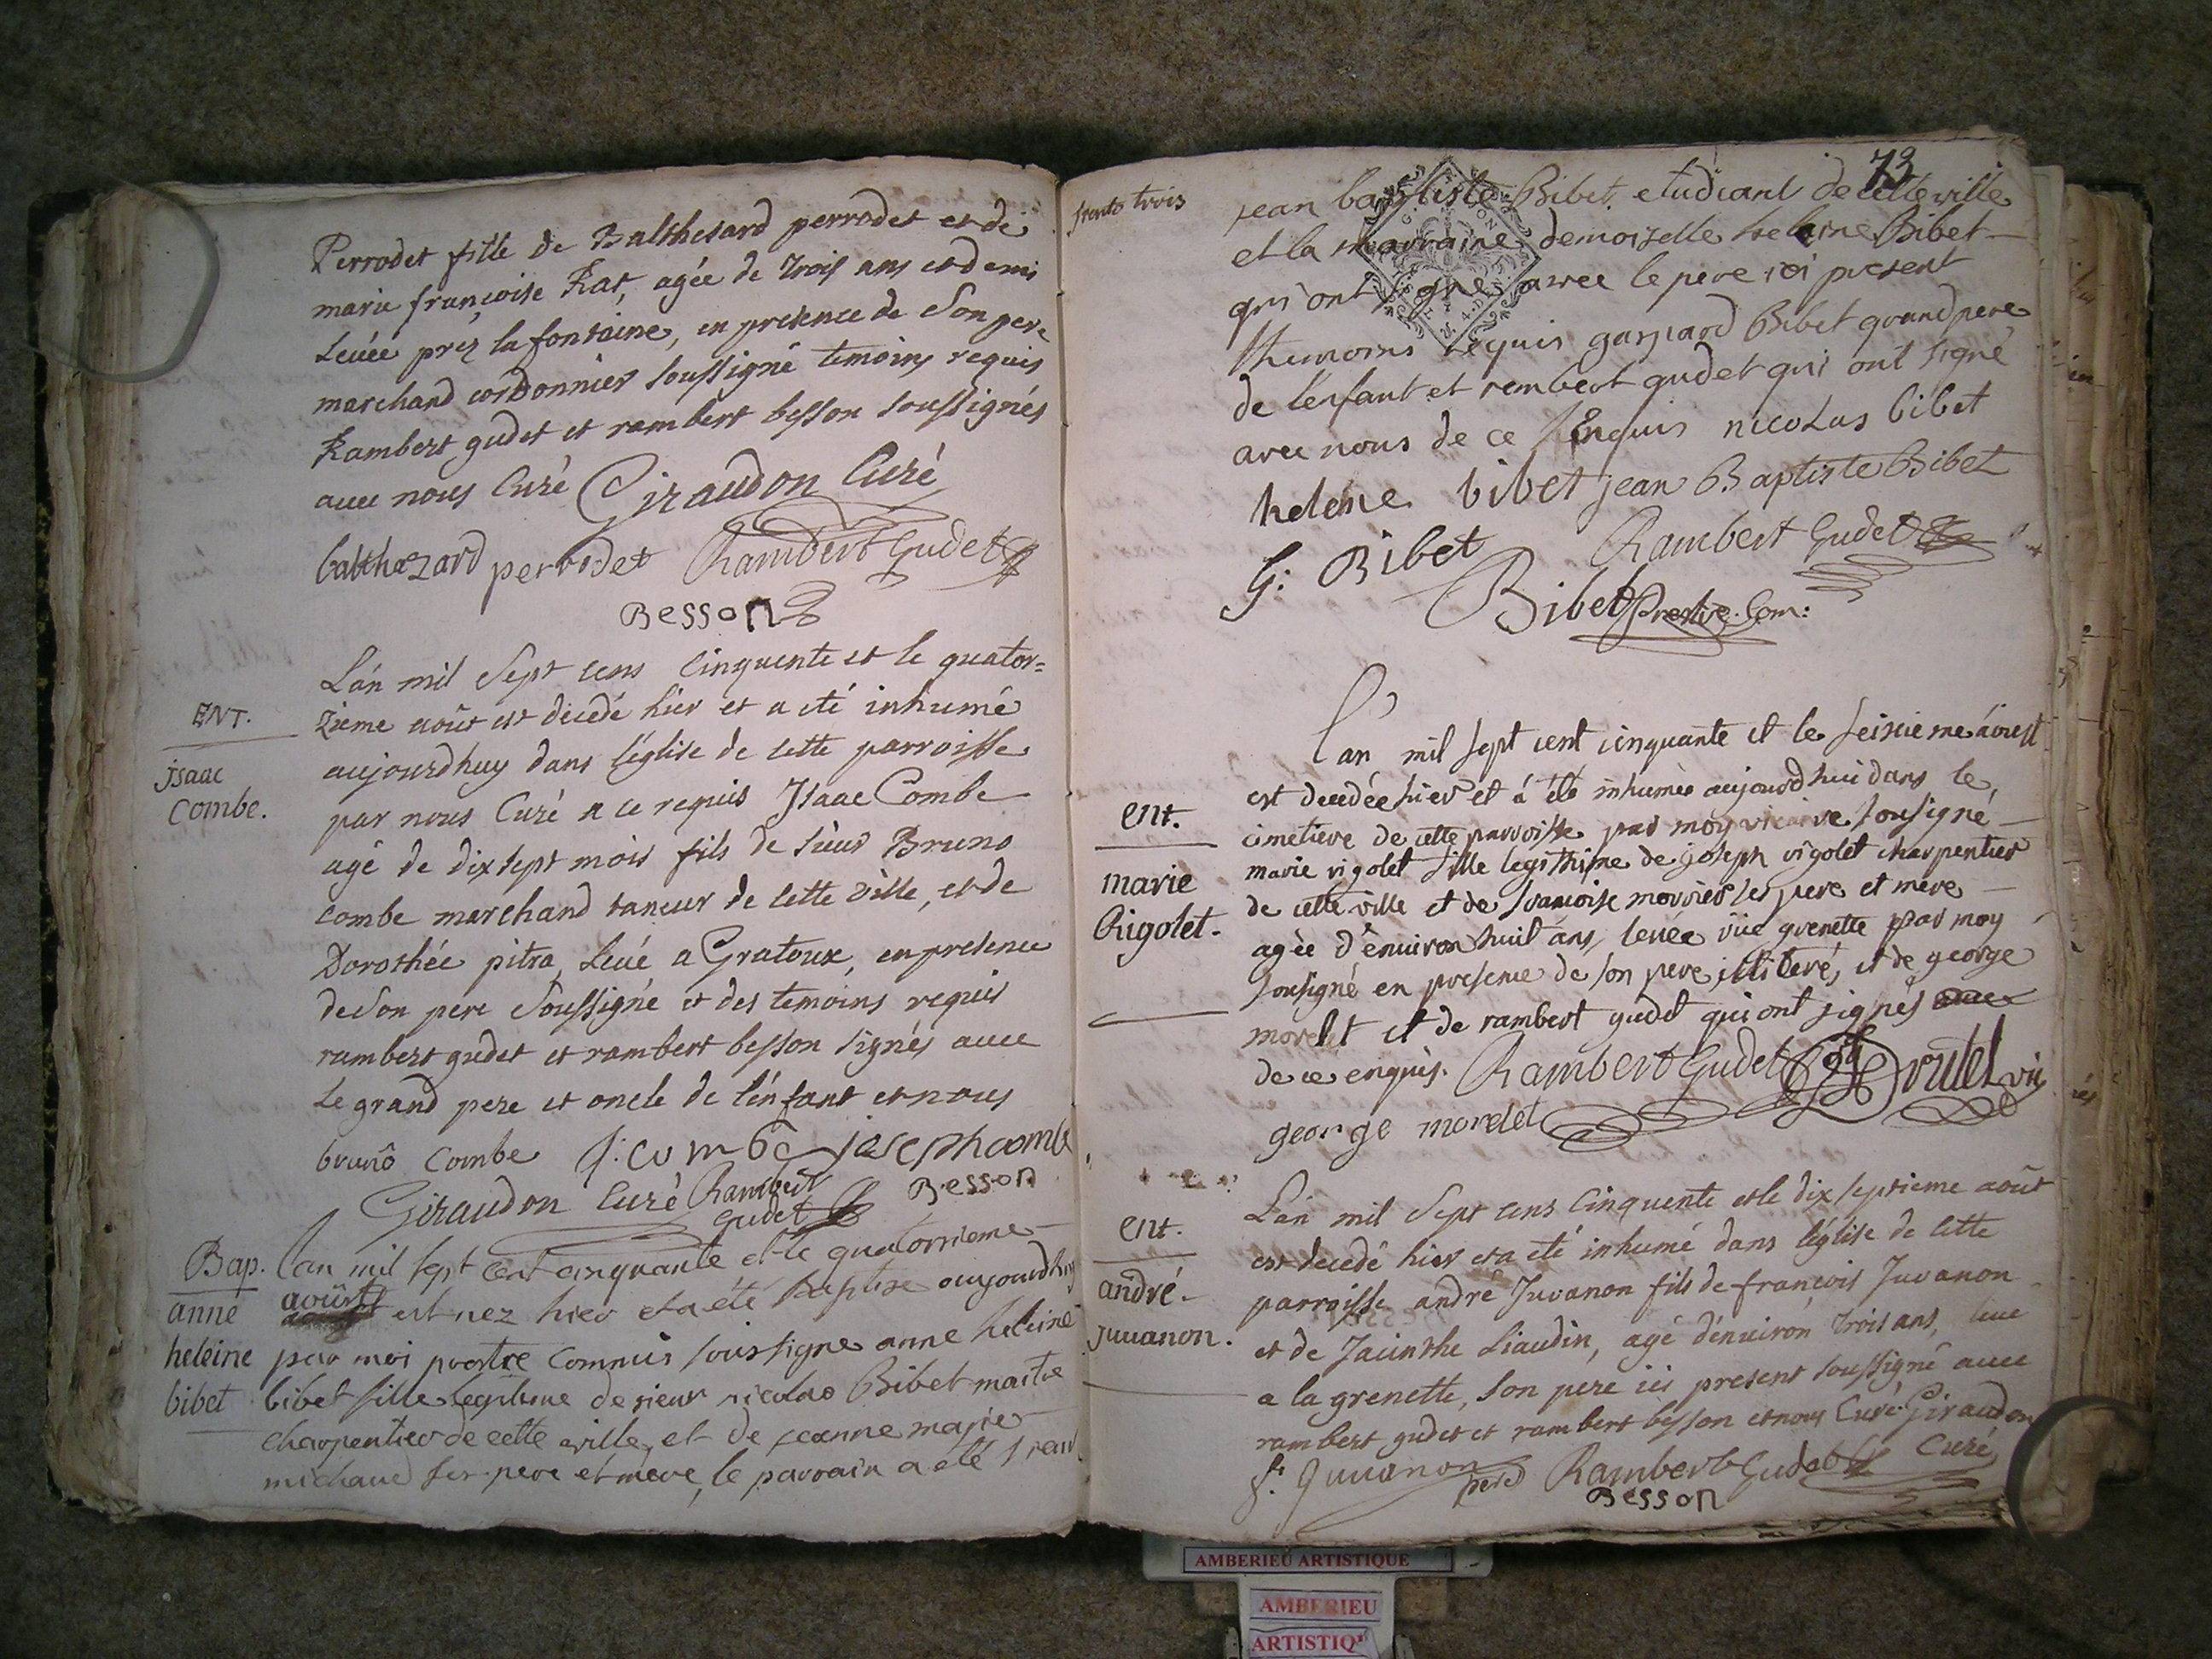 Perrodet fille de Balthesard perrodet et de
marie françoise Rat, agée de trois ans et demi
Levée préz la fontaine, en presence de Son pere
marchand cordonnier soussigné temoins requis
Rambert gudet et rambert besson soussignés
avec nous Curé Giraudon Curé
balthazard perrodet Rambert Gudet
Besson
L'an mil Sept cens Cinquente et le quator=
ENT. zieme août est décedé hier et a été inhumé
aujourdhuy dans l'église de cette parroisse
jsaac
Combe. par nous Curé a ce requis Isaac Combe
agé de dix sept mois fils de sieur Bruno
combe marchand taneur de cette ville, et de
Dorothée pitra, Levé a Gratoux, en presence
de Son pere Soussigné et des temoins requis
rambert gudet et rambert besson signés avec
Le grand pere et oncle de l'enfant et nous
brunô Combe j: combe joseph combe
Giraudon Curé Rambert Gudet Besson
Bap. Lan mil sept cent cinquante et le quatorsieme
anne aoûst est nez hier et a été baptise aujourdhuy
heleine par moi prestre commis soussigne anne heleine
bibet bibet fille legitime de sieur nicolas Bibet maitre
charpentier de cette ville, et de jeanne marie
michaud ses pere et mere, le parrain a été sieur
trente trois
73
jean baptiste Bibet etudiant de cette ville
et la marraine demoiselle heleine Bibet
qui ont signe avec le pere ici present
themoins requis gaspard Bibet grand pere
de l'enfant et rembert gudet qui ont signé
avec nous de ce Enquis nicolas bibet
helene bibet jean Baptiste Bibet
G: Bibet Rambert Gudet
Bibet Prestre Com:
L'an mil sept cent cinquante et le seisieme aoust
est decedée hier et á été inhumée aujourd'hui dans le
ent. cimetiere de cette parroisse par moy vicaire sousigné
marie
Rigolet. marie rigolet fille legithime de joseph rigolet charpentier
de cette ville et de francoise morrier ses pere et mere
agèe d'énuiron huit áns, levée rüe grenette par moy
sousigné en presence de son pere illiteré, et de george
morelet et de rambert gudet qui ont signés
de ce enquis. Rambert Gudet Drutel vic
george morelet
L'an mil Sept cens Cinquente et le dix septieme août
ent. est decedé hier et a été inhumé dans l'église de cette
andré parroisse andré Juvanon fils de francois Juvanon
juuanon. et de Jacinthe Liaudin, agé d'enuiron trois ans, leve
a la grenette, son pere ici present soussigné avec
rambert gudet et rambert besson et nous Curé. Giraudon
f. Juuanon pere Rambert Gudet Curé
Besson
AMBERIEU ARTISTIQUE
AMBERIEU
ARTISTIQ